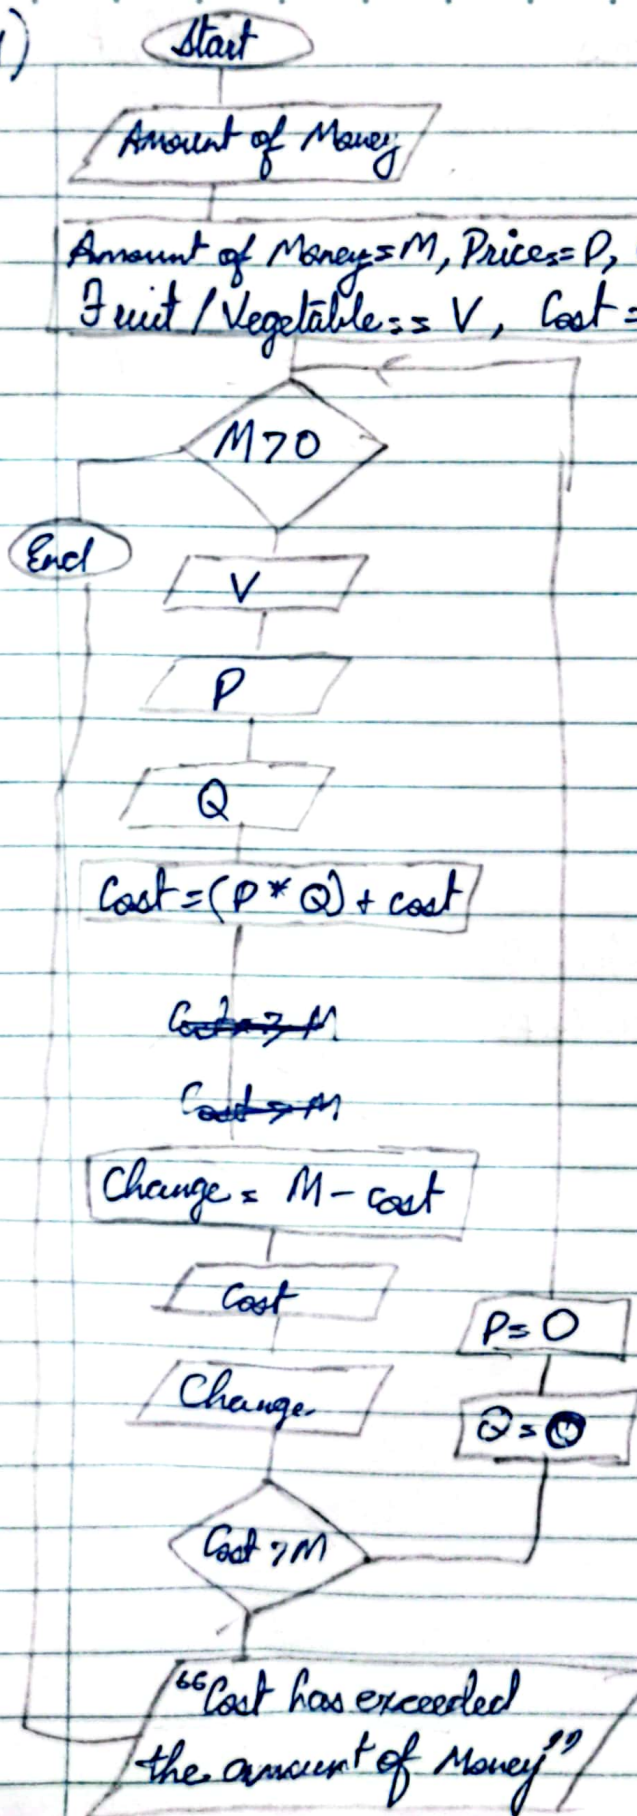 1)
Start
Amount of Money
Amount of Money=M, Prices=P,
Fruit / Vegetable== V, Cost =
M>0
End
V
P
Q
Cost=(P * Q) + cost
Cost > M
Cost > M
Change = M - cost
Cost
P= 0
Change.
Q = 0
Cost >M
"Cost has exceeded
the amount of Money"